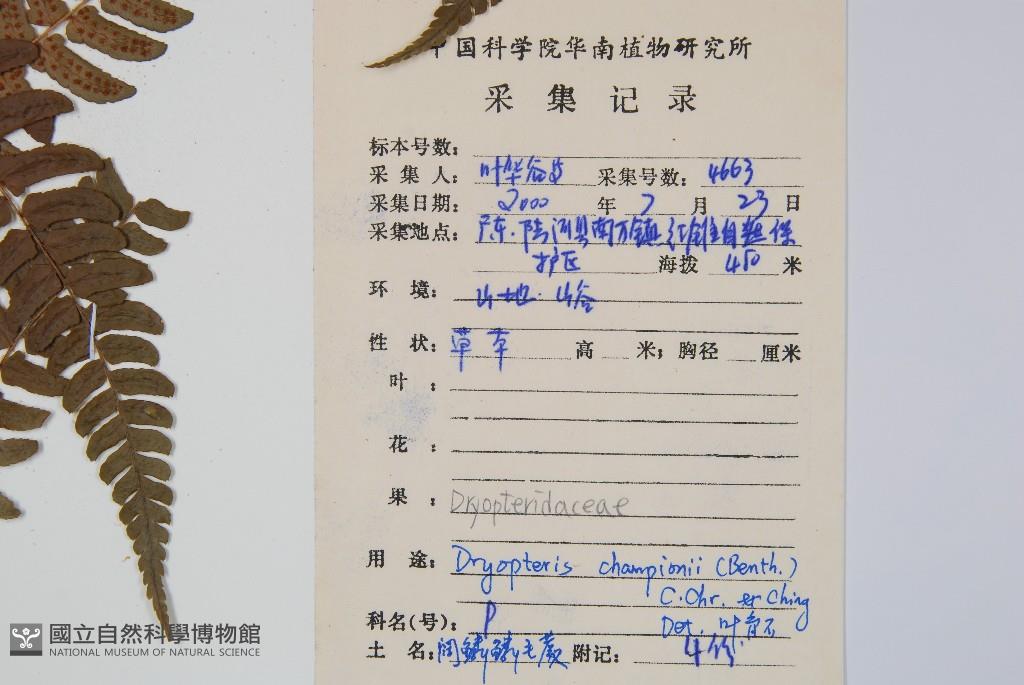 中国科学院华南植物研究所
采集记录
标本号数：
采集人：叶华谷 采集号数：4663
采集日期：2000 年 7 月 23 日
采集地点：广东·陆河县南万镇红锥自然保
护区 海拨 450 米
环境：山地·山谷
性状：草本 高 米；胸径 厘米
叶：
花：
果：Dryopteridaceae
用途：Dryopteris championii (Benth.)
C. Chr. et Ching
科名(号)：P Det. 叶育石
土名：阔鳞鳞毛蕨 附记：4份
國立自然科學博物館
NATIONAL MUSEUM OF NATURAL SCIENCE